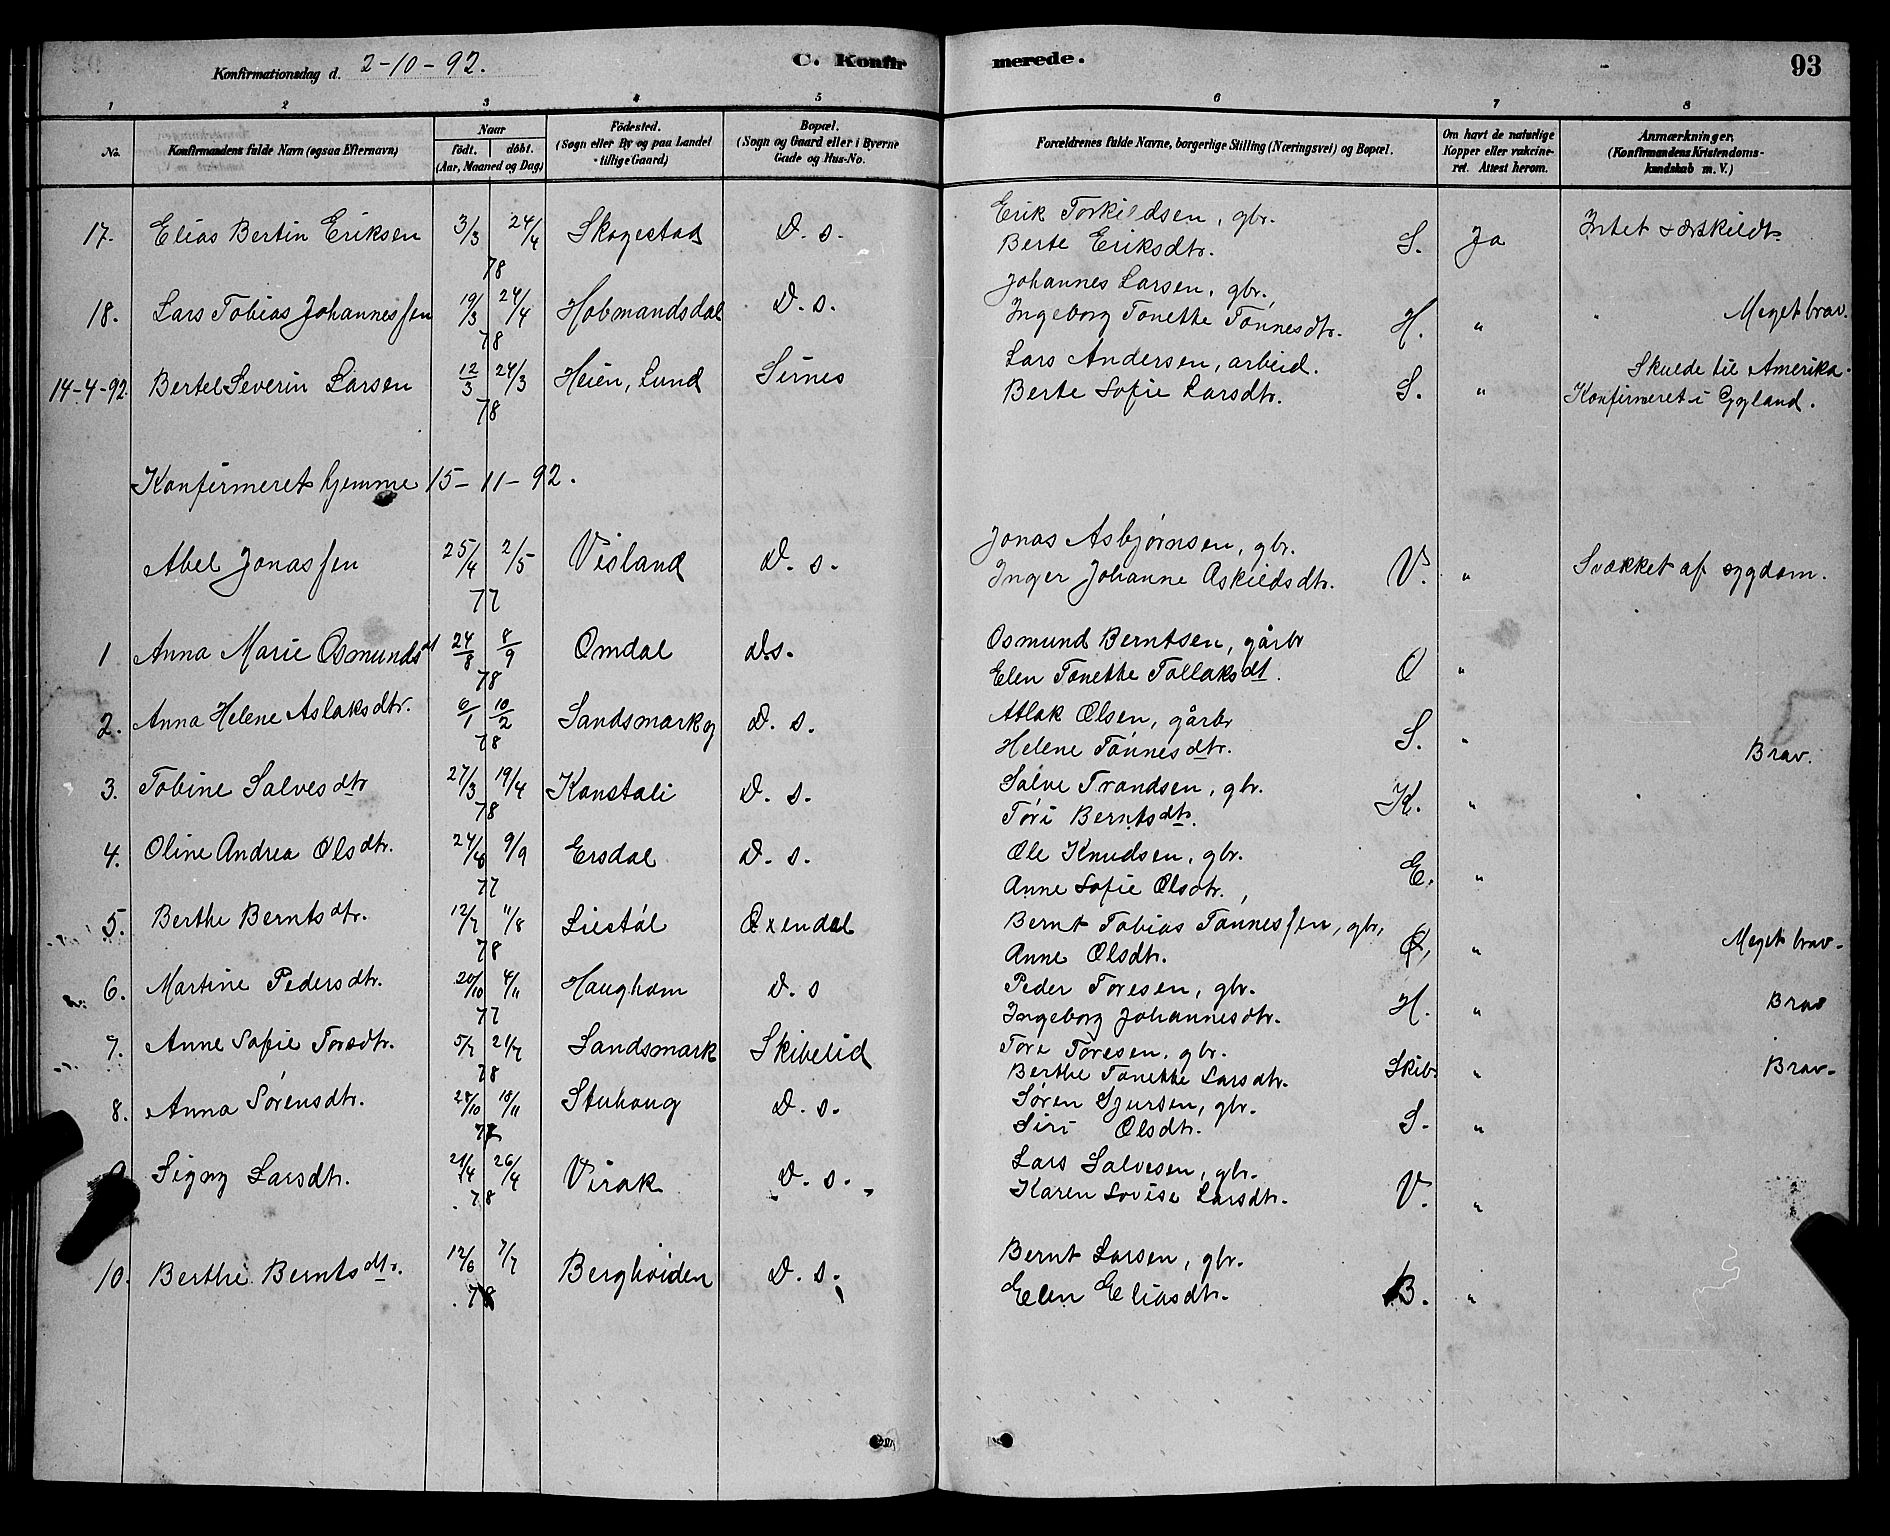 Konfirmationsdag d. 2-10-92. C. Konfirmerede. 93
1 2 3 4 5 6 7 8
No. Konfirmandens fulde Navn (ogsaa Efternavn) Naar födt. döbt. (Aar, Maaned og Dag) Födested. (Sogn eller By og paa Landet tillige Gaard) Bopæl. (Sogn og Gaard eller i Byerne Gade og Hus-No. Forældrenes fulde Navne, borgerlige Stilling (Næringsvei) og Bopæl. Om havt de naturlige Kopper eller vakcineret. Attest herom. Anmærkninger. (Konfirmandens Kristendomskundskab m. V.)
17. Elias Bertin Eriksen 3/3 24/4 78 Skogestad D. s. Erik Torkildsen, gbr. Berte Eriksdtr. S. Ja Intet særskildt.
18. Lars Tobias Johannessen 19/3 24/4 78 Hobmandsdal D. s. Johannes Larsen, gbr. Ingeborg Tonette Tønnesdtr. H. " " Meget brav.
14-4-92. Bertel Severin Larsen 12/3 24/3 78 Heien, Lund Sirnes Lars Andersen, arbeid. Berte Sofie Larsdtr. S. " Skulde til Amerika. Konfirmeret i Gyland.
Konfirmeret hjemme 15-11-92.
Abel Jonassen 25/4 2/5 77 Visland D. s. Jonas Asbjørnsen, gbr. Inger Johanne Askildsdtr. V. " Svækket af sygdom.
1 Anna Marie Osmundsdt 24/8 8/9 78 Omdal D.s. Osmund Berntsen, gårbr Elen Tonette Tollaksdt. O "
2. Anna Helene Aslaksdtr. 6/1 10/2 78 Sandsmark og D. s. Atlak Olsen, gårbr Helene Tønnesdtr. S. " Brav.
3. Tobine Salvesdtr 27/3 19/4 78 Konstali D. s. Salve Trondsen, gbr. Tøri Berntsdtr. K. "
4. Oline Andrea Olsdtr. 9/9 77 Ersdal D. s. Ole Knudsen, gbr. Anne Sofie Olsdtr. E. "
5. Berthe Berntsdtr. 12/7 11/8 78 Liestøl Oxendal Bernt Tobias Tønnessen, gbr, Anne Olsdtr. O, " Meget brav.
6. Martine Pedersdtr. 20/10 4/11 77 Haughom D. s Peder Toresen, gbr. Ingeborg Johannesdtr. H. " Brav
7. Anne Sofie Toredtr. 5/7 21/7 78 Sandsmark Skibelid Tore Toresen, gbr. Berthe Tonette Larsdtr. Skib. " Brav.
8. Anna Sørensdtr. 28/10 18/11 77 Stuhaug D. s. Søren Sjursen, gbr. Siri Olsdtr. S. "
9 Signy Larsdtr. 21/4 26/4 78 Virak D. s. Lars Salvesen, gbr. Karen Lovise Larsdtr. V. "
10. Berthe Berntsdtr. 12/6 7/7 78 Berghøiden D. s. Bernt Larsen, gbr. Elen Eliasdtr. B. "